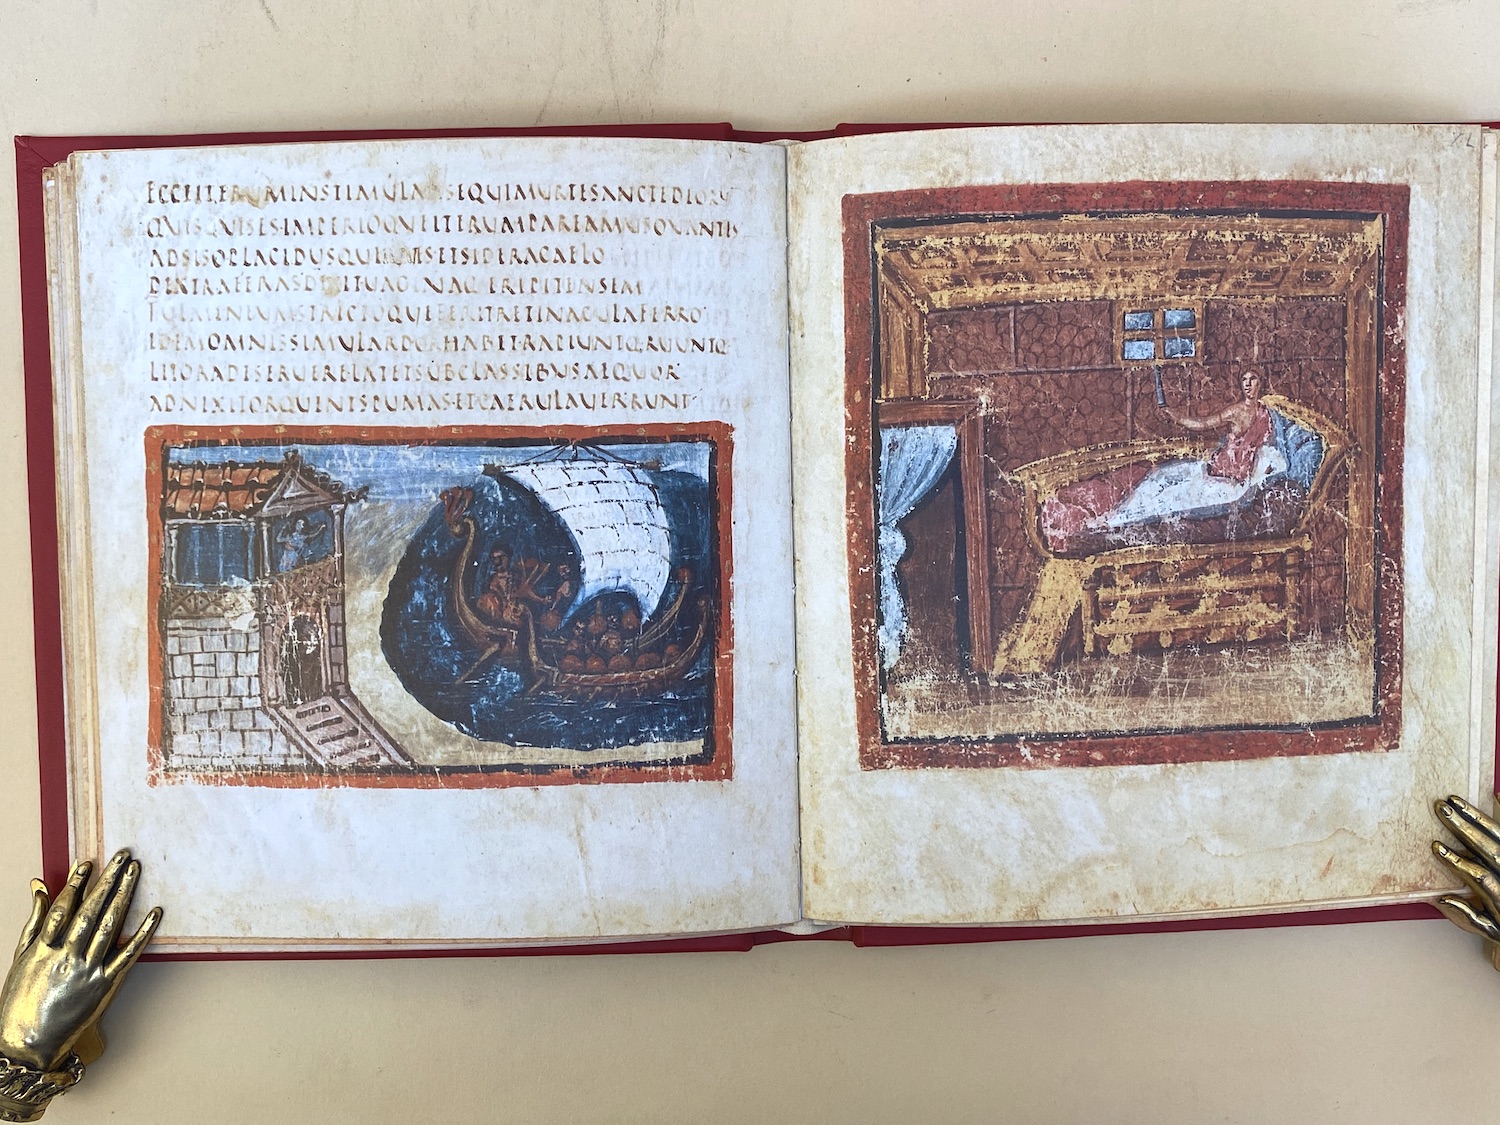 ECCEITERUMINSTIMULATSEQUIMURTESANCTEDEORU
QUISQUISESIMPERIOQUEITERUMPAREAMUSOUANTIS
ADSISOPLACIDUSQUEIUUESETSIDERACAELO
DEXTRAFERASDIXITUAGINAQ·ERIPITENSEM
FULMINEUMSTRICTOQUEFERITRETINACULAFERRO
IDEMOMNISSIMULARDORHABETRAPIUNTQ·RUUNTQ·
LITORADESERUERELATETSUBCLASSIBUSAEQUOR
ADNIXITORQUENTSPUMASETCAERULAUERRUNT